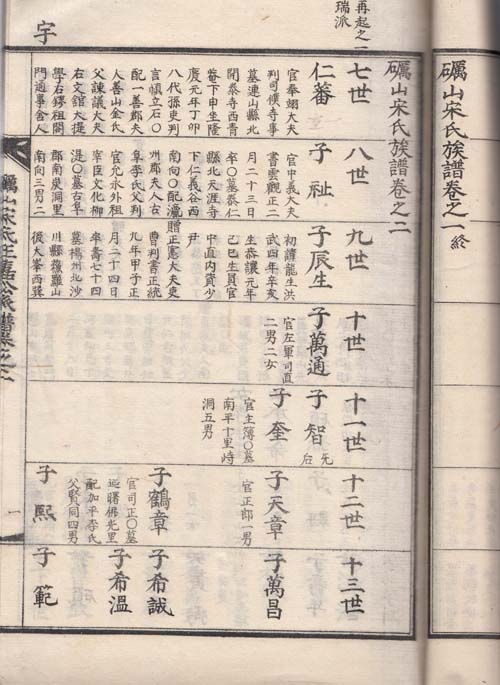 礪山宋氏族譜卷之一 終
礪山宋氏族譜卷之二
再起之一
瑞派
宇
七世
仁蕃
官奉翊大夫
判司僕寺事
墓連山縣北
開泰寺西青
菴下申坐隆
慶元年丁卯
八代孫吏判
言愼立石○
配一善郡夫
人善山金氏
父諫議大夫
右文館大提
學右鍔祖閤
門通事舍人
八世
子祉
官中義大夫
書雲觀正二
月二十三日
卒○墓泰仁
縣北天涯寺
下仁義谷酉
南向○配
州郡夫人古
阜李氏父判
官允永外祖
宰臣文化柳
湜○墓古阜
郡南炭洞里
南向三男二
九世
子辰生
初諱龍生洪
武四年辛亥
生恭讓元年
己巳生員官
中直內資少
尹
贈正憲大夫吏
曹判書正統
九年甲子正
月二十四日
卒壽七十四
墓楊州北沙
川縣巖山
後大峯西巽
十世
子萬通
官左軍司直
二男二女
十一世
子智 先后
子奎
官主簿○墓
南平十里峙
洞五男
十二世
子天章
官正郎一男
子鶴章
官司正○墓
曙佛光里
配加平李氏
父賢同四男
子熙
十三世
子萬昌
子希誠
子希溫
子範
一